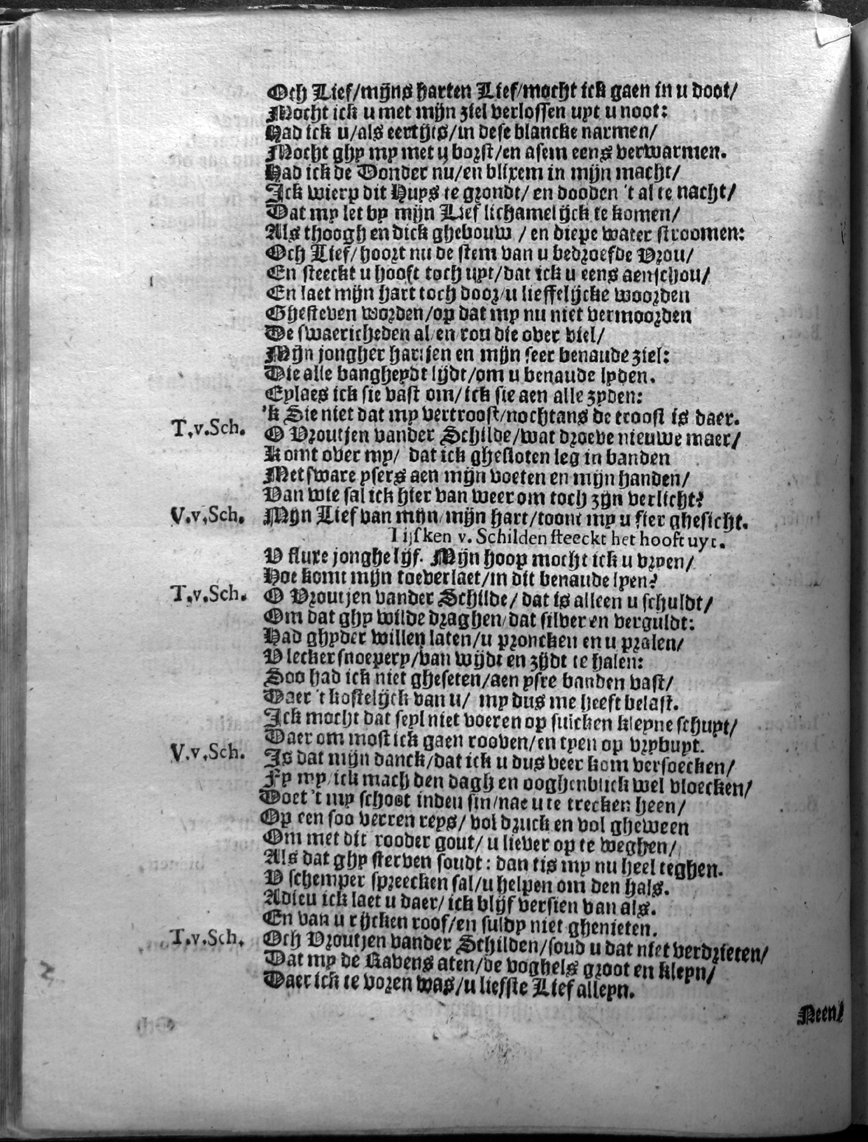 Och Lief/mijns harten Lief/mocht ick gaen in u doot/
Mocht ick u met mijn ziel verlossen uyt u noot:
Had ick u/als eertijts/in dese blancke narmen/
Mocht ghy my met u borst/en asem eens verwarmen.
Had ick de Donder nu/en blixem in mijn macht/
Ick wierp dit Huys te grondt/ en dooden 't al te nacht/
Dat my let by mijn Lief lichamelijck te komen/
Als thoogh en dick ghebouw / en diepe water stroomen:
Och Lief/hoort nu de stem van u bedroefde Vrou/
En steeckt u hooft toch uyt/dat ick u eens aenschou/
En laet mijn hart toch door/u lieffelijcke woorden
Ghesteven worden/op dat my nu niet vermoorden
De swaericheden al/en rou die over viel/
Mijn jongher hartjen en mijn seer benaude ziel:
Die alle bangheydt lijdt/om u benaude lyden.
Eylaes ick sie vast om/ick sie aen alle zyden:
'k Sie niet dat my vertroost/nochtans de troost is daer.
T.v.Sch. O Vroutjen vander Schilde/wat droeve nieuwe maer/
Komt over my/ dat ick ghesloten leg in banden
Met sware ysers aen mijn voeten en mijn handen/
Van wie sal ick hier van weer om toch zijn verlicht?
V.v.Sch. Mijn Lief van mijn/mijn hart/toont my u fier ghesicht.
Tijsken v. Schilden steeckt het hooft uyt.
U fluxe jonghe lijf. Mijn hoop mocht ick u vryen/
Hoe komt mijn toeverlaet/in dit benaude lyen?
T.v.Sch. O Vroutjen vander Schilde/ dat is alleen u schuldt/
Om dat ghy wilde draghen/dat silver en verguldt:
Had ghyder willen laten/u proncken en u pralen/
U lecker snoepery/van wijdt en zijdt te halen:
Soo had ick niet gheseten/aen ysre banden vast/
Daer 't kostelijck van u/ my dus me heeft belast.
Ick mocht dat seyl niet voeren op sulcken kleyne schuyt/
Daer om most ick gaen rooven/en tyen op vrybuyt.
V.v.Sch. Is dat mijn danck/dat ick u dus veer kom versoecken/
Fy my/ick mach den dagh en ooghenblick wel vloecken/
Doet 't my schoot inden sin/nae u te trecken heen/
Op een soo verren reys/ vol druck en vol gheween
Om met dit rooder gout/ u liever op te weghen/
Als dat ghy sterven soudt: dan tis my nu heel teghen.
U schemper spreecken sal/u helpen om den hals.
Adieu ick laet u daer/ ick blijf versien van als.
En van u rijcken roof/en suldy niet ghenieten.
T.v.Sch. Och Vroutjen vander Schilden/soud u dat niet verdrieten/
Dat my de Ravens aten/de voghels groot en kleyn/
Daer ick te voren was/u liefste Lief alleyn.
Neen/